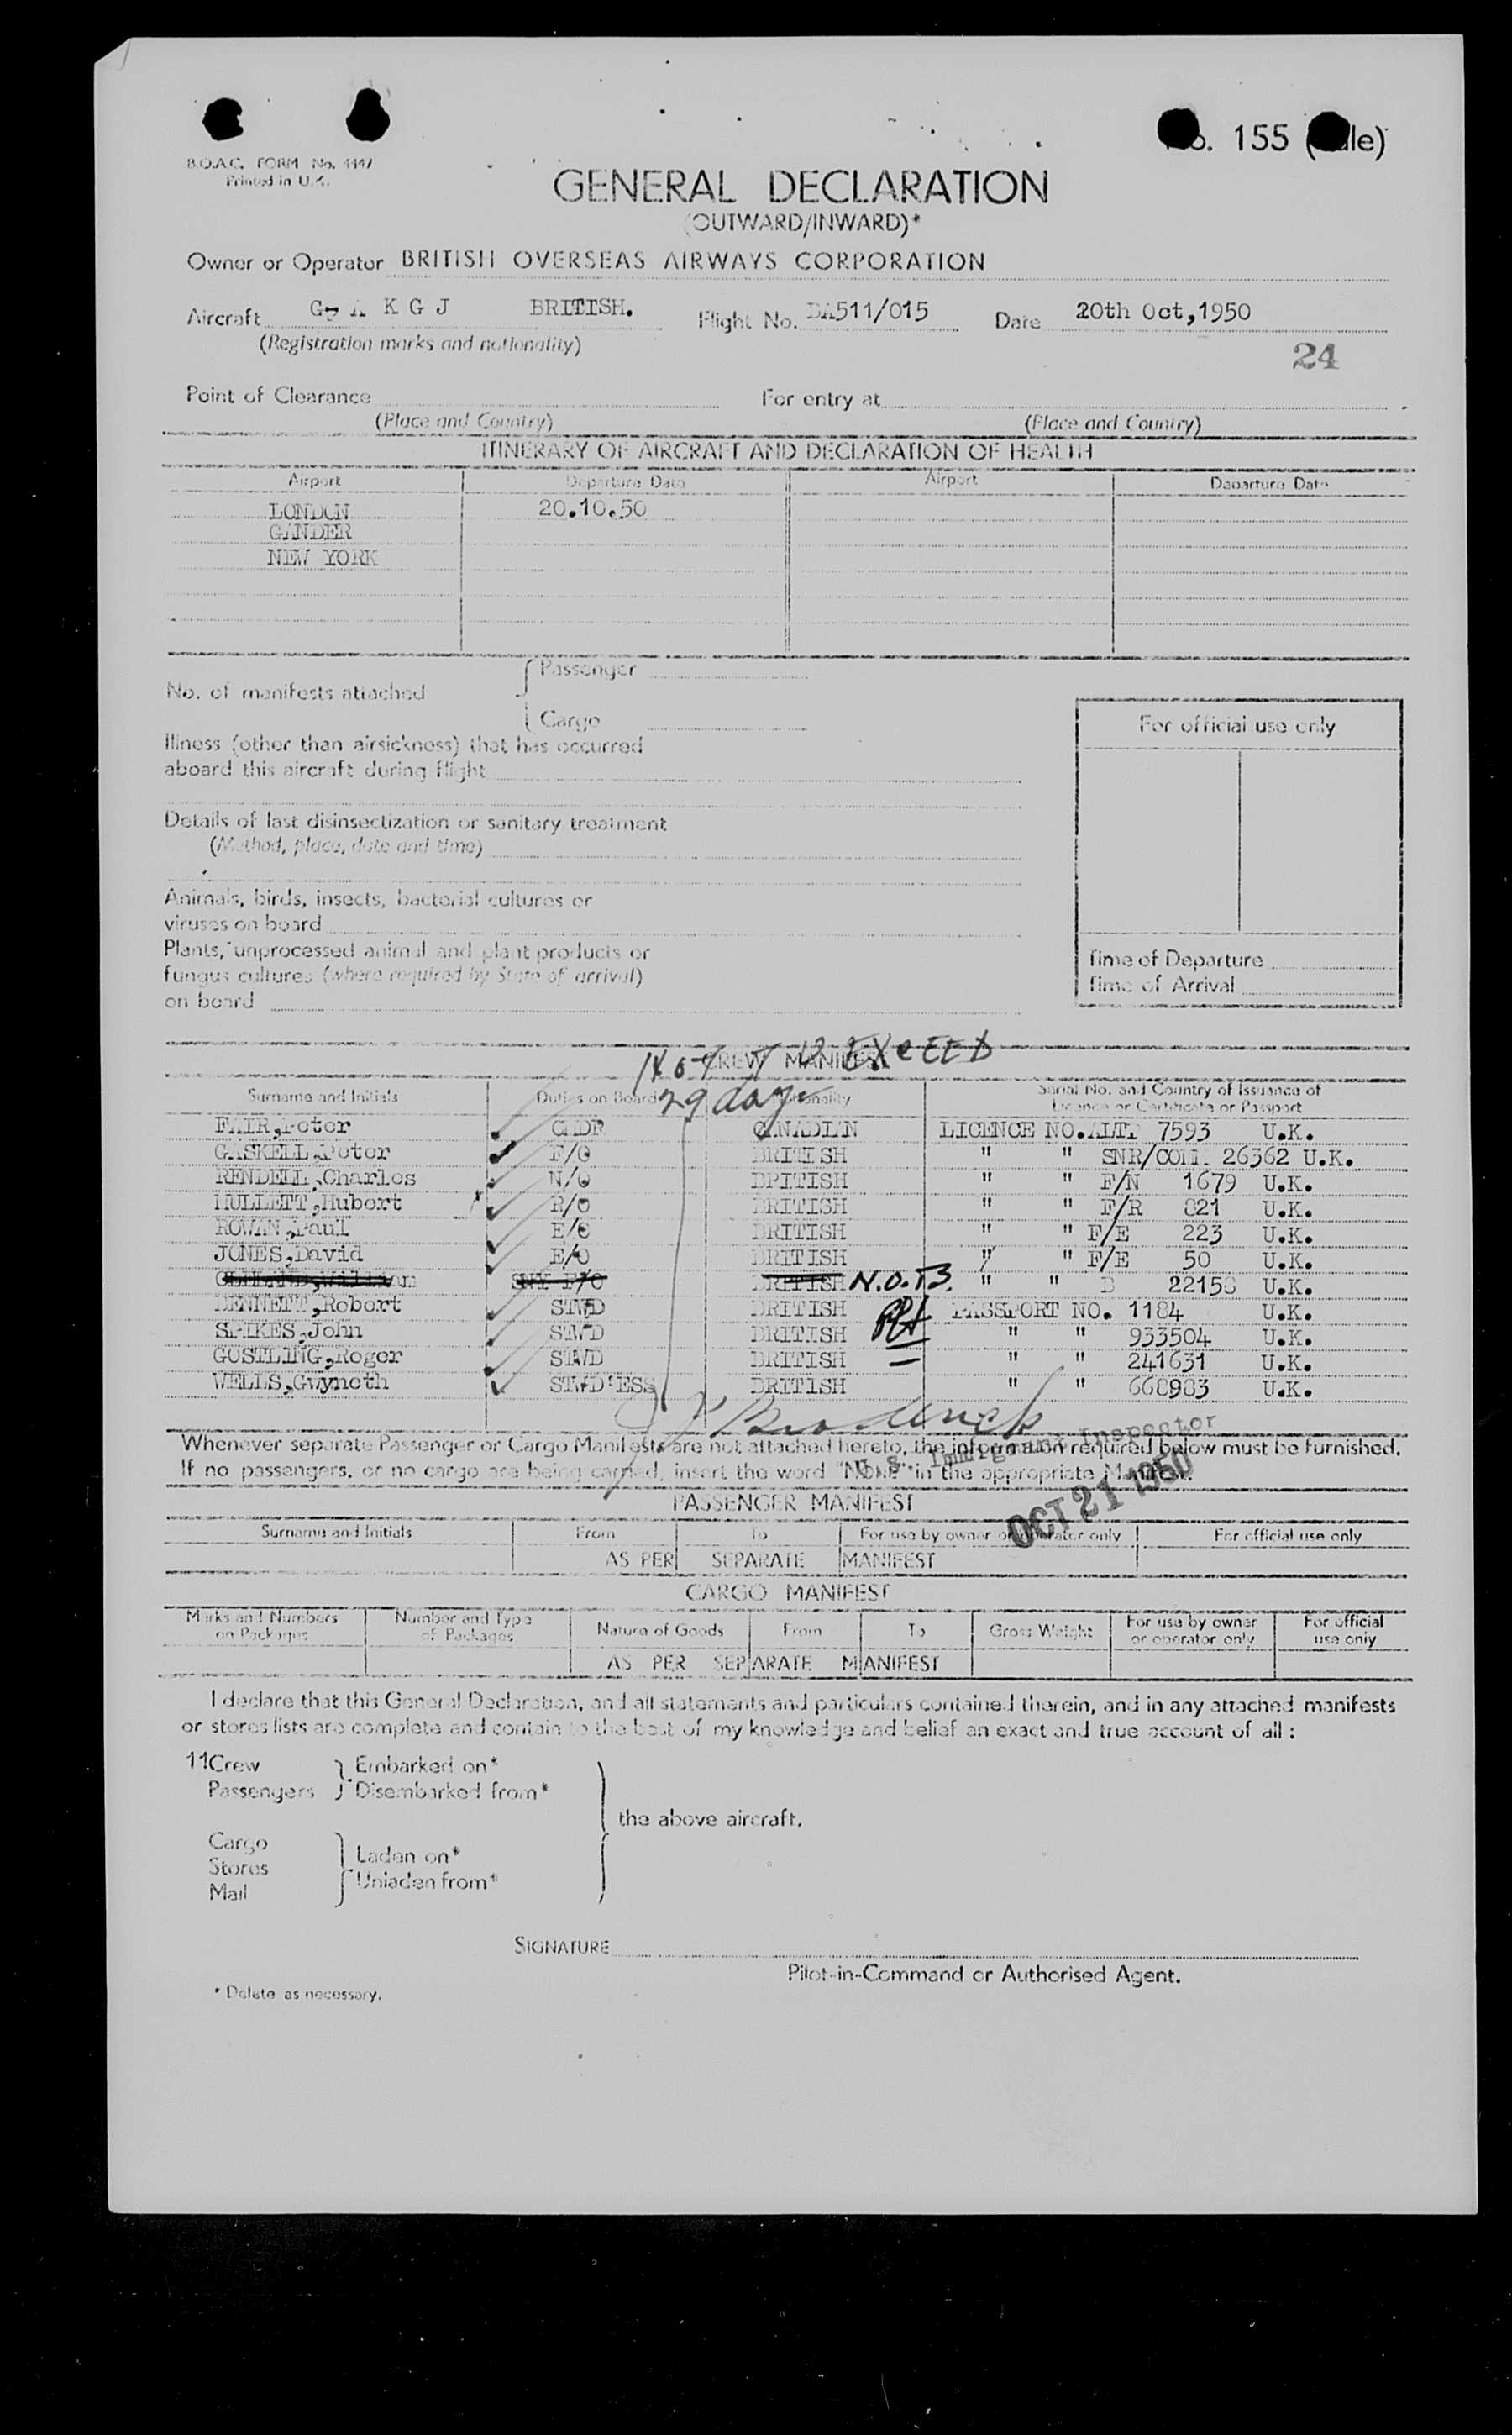 B.O.A.C. FORM No. 4447
Printed in U.K.
No. 155 (
GENERAL DECLARATION
(OUTWARD/INWARD)*
Owner or Operator BRITISH OVERSEAS AIRWAYS CORPORATION
Aircraft G- A K G J BRITISH. Flight No. BA511/015 Date 20th Oct,1950
(Registration marks and nationality)
24
Point of Clearance For entry at
(Place and Country) (Place and Country)
ITINERARY OF AIRCRAFT AND DECLARATION OF HEALTH
Airport Departure Date Airport Departure Date
LONDON 20.10.50
GANDER
NEW YORK
No. of manifests attached
Passenger
Cargo
Illness (other than airsickness) that has occurred
aboard this aircraft during flight
Details of last disinsectization or sanitary treatment
(Method, place, date and time)
Animals, birds, insects, bacterial cultures or
viruses on board
Plants, unprocessed animal and plant products or
fungus cultures (where required by State of arrival)
on board
For official use only
Time of Departure
Time of Arrival
CREW MANIFEST
EXCEED
29 days
Surname and Initials Duties on Board Nationality Serial No. and Country of Issuance of
Licence or Certificate or Passport
FAIR,Peter CMDR CANADIAN LICENCE NO.ALTP 7593 U.K.
GASKELL,Peter F/O BRITISH " " SNR/COM. 26362 U.K.
RENDELL,Charles N/O BRITISH " " F/N 1679 U.K.
MULLETT,Hubert R/O BRITISH " " F/R 821 U.K.
ROWAN,Paul E/O BRITISH " " F/E 223 U.K.
JONES,David E/O BRITISH " " F/E 50 U.K.
William F/O BRITISH N.O.B. " " B 22158 U.K.
BENNETT,Robert STWD BRITISH PASSPORT NO. 1184 U.K.
SPIKES,John STWD BRITISH " " 933504 U.K.
GOSTLING,Roger STWD BRITISH " " 241631 U.K.
WELLS,Gwyneth STWD'ESS BRITISH " " 668983 U.K.
U.S. Immigrant Inspector
OCT 21 1950
Whenever separate Passenger or Cargo Manifests are not attached hereto, the information required below must be furnished.
If no passengers, or no cargo are being carried, insert the word "NONE" in the appropriate Manifest.
PASSENGER MANIFEST
Surname and Initials From To For use by owner or operator only For official use only
AS PER SEPARATE MANIFEST
CARGO MANIFEST
Marks and Numbers on Packages Number and Type of Packages Nature of Goods From To Gross Weight For use by owner or operator only For official use only
AS PER SEPARATE MANIFEST
I declare that this General Declaration, and all statements and particulars contained therein, and in any attached manifests
or stores lists are complete and contain to the best of my knowledge and belief an exact and true account of all :
11 Crew Embarked on*
Passengers Disembarked from*
the above aircraft.
Cargo
Stores Laden on*
Mail Unladen from*
SIGNATURE
Pilot-in-Command or Authorised Agent.
* Delete as necessary.